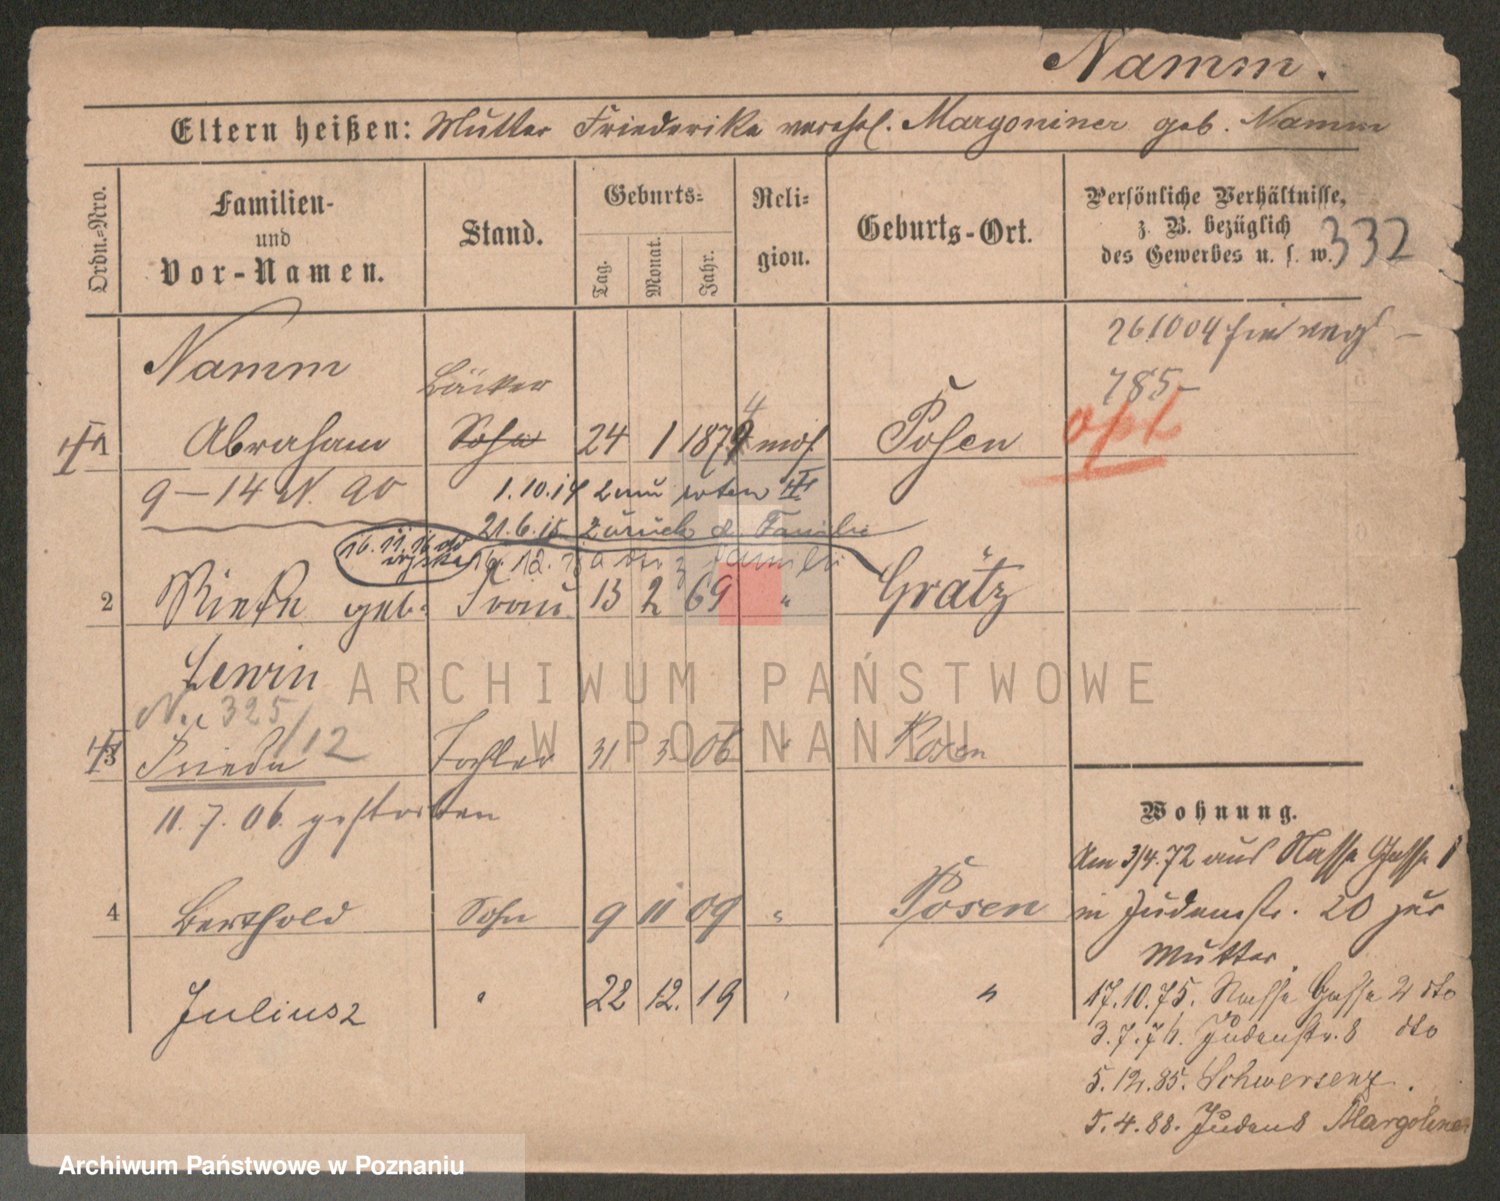 Namm.
Eltern heißen: Mutter Friederika verehel. Margoniner geb. Namm
Ordn.-Nro.
Familien- und Vor-Namen.
Stand.
Geburts-
Tag.
Monat.
Jahr.
Reli-
gion.
Geburts-Ort.
Persönliche Verhältnisse,
z. B. bezüglich
des Gewerbes u. s. w.
332
261004
Namm
785
Bäcker
opt
4
Abraham Sohn 24 1 1879 mos. Posen
9-14 N. 90
1.10.14
21.6.15 zurück d. Familie
2 geb. Frau 13 2 69 " Grätz
Lewin
No 325/12
3 Frieda Tochter 31 3 06 " Posen
11.7.06. gestorben
Wohnung.
Am 3/4.72 aus Nasse Gasse 1
in Judenstr. 20 zur
Mutter.
4 Berthold Sohn 9 11 09 " Posen
Julius 2 " 22 12. 19 " "
17.10.75. Nasse Gasse 2 dto
3.7.76. Judenstr. 8 dto
5.12.85. Schwersenz.
5.4.88. Juden 8 Margoliner
ARCHIWUM PAŃSTWOWE
W POZNANIU
Archiwum Państwowe w Poznaniu